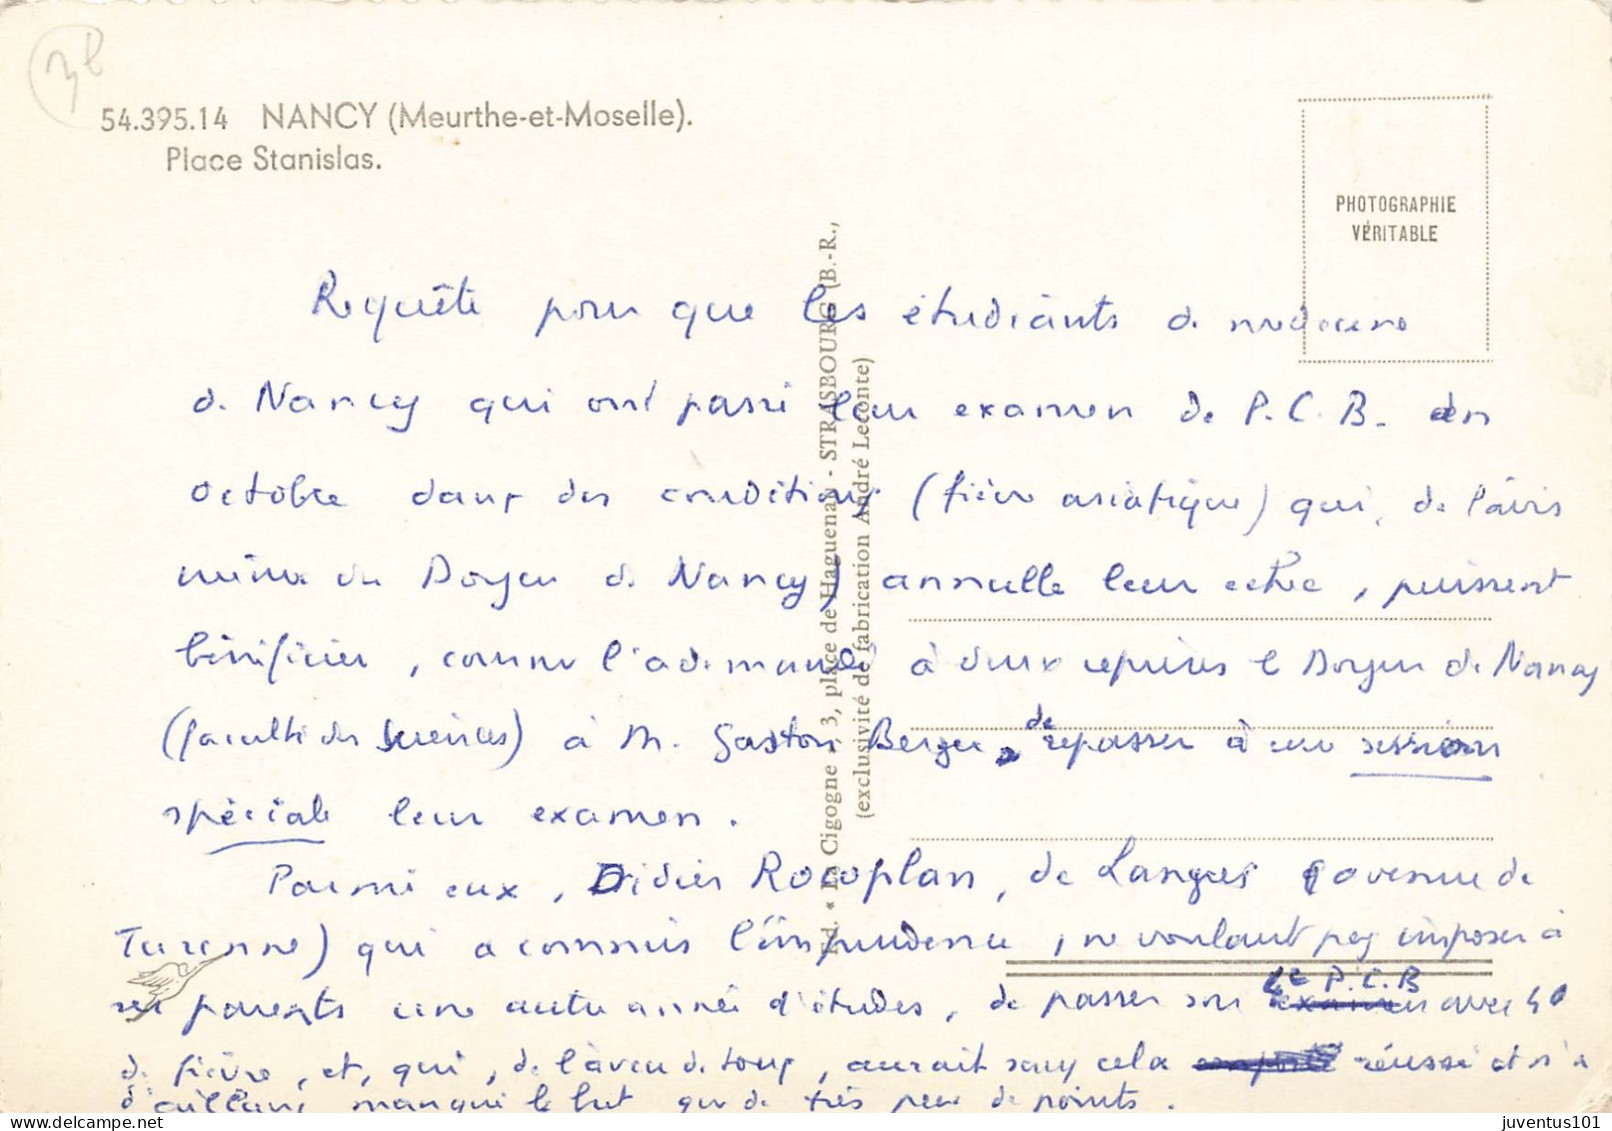 3€
54.395.14 NANCY (Meurthe-et-Moselle).
Place Stanislas.
PHOTOGRAPHIE
VÉRITABLE
Ed. « La Cigogne », 3, place de Haguenau - STRASBOURG (B.-R.,
(exclusivité de fabrication André Leconte)
Requête pour que les étudiants de médecine
de Nancy qui ont passé leur examen de P.C.B. en
octobre dans des conditions (fièvre asiatique) qui, de l'avis
même du Doyen de Nancy) annulle leur echec, puissent
bénéficier, comme l'a demandé à deux reprises le Doyen de Nancy
(faculté des Sciences) à M. Gaston Berger, de repasser à une session
spéciale leur examen.
Parmi eux, Didier Rocoplan, de Langres (avenue de
Turenne) qui a commis l'imprudence, ne voulant pas imposer à
ses parents une autre année d'études, de passer son le P.C.B avec 40
de fièvre, et, qui, de l'aveu de tous, aurait sans cela réussi et n'a
d'ailleurs manqué le but que de très peu de points.
juventus101